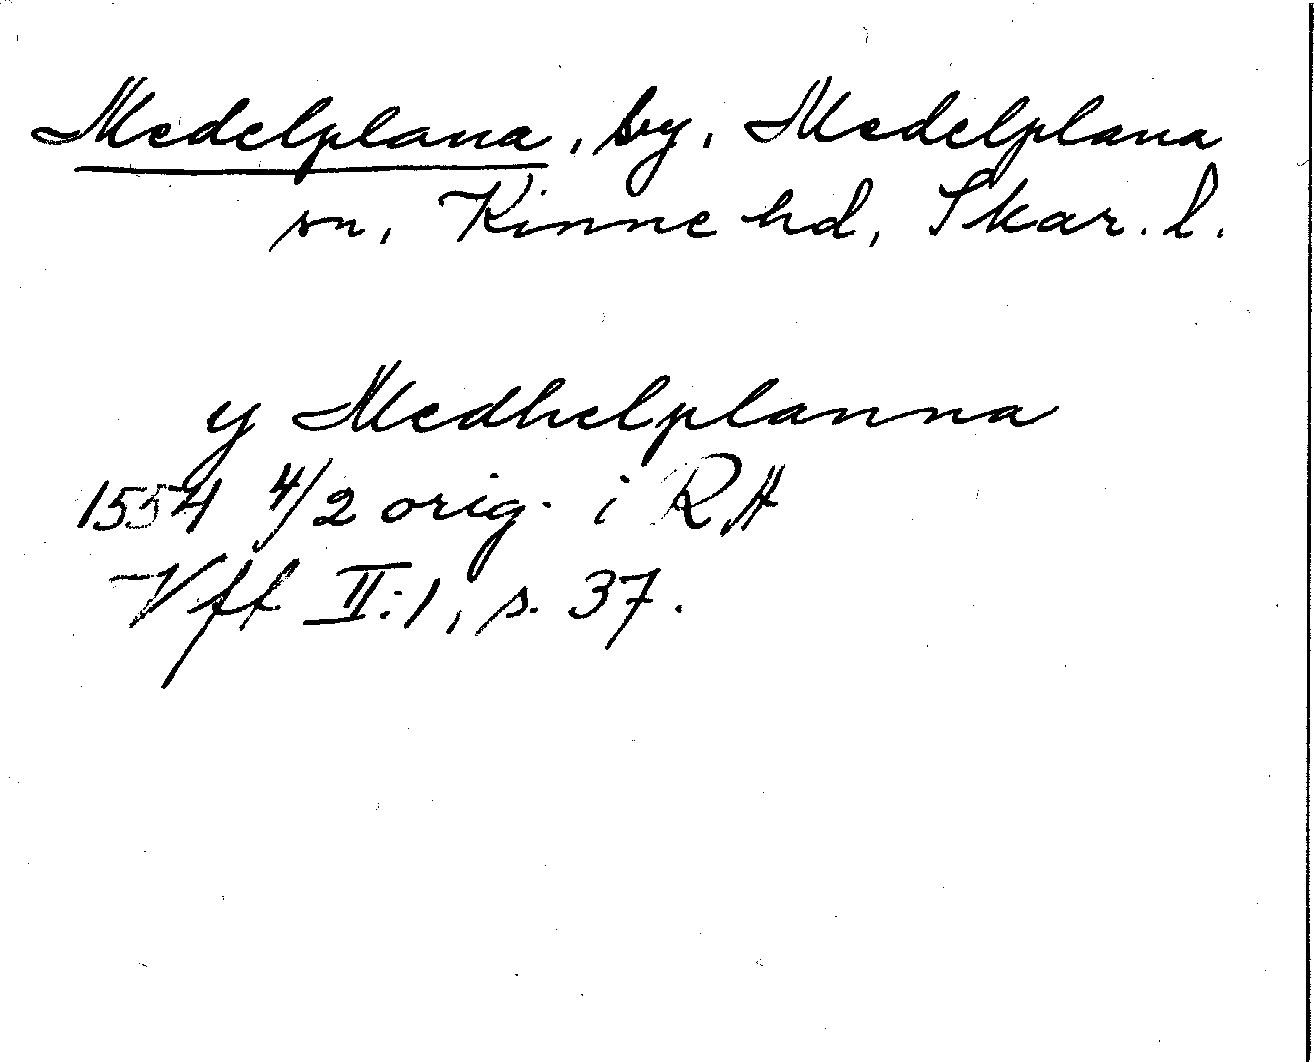 Medelplana, by, Medelplana
sn, Kinne hd, Skar. l.
y Medhelplanna
1554 4/2 orig. i RA
Vff II:1, s. 37.